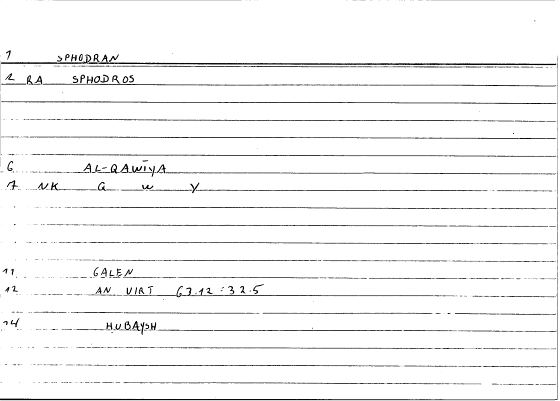 1 SPHODRAN
2 RA SPHODROS
6 AL-QAWĪYA
7 NK Q W Y
11 GALEN
12 AN VIRT 67.12 : 32.5
14 HUBAYSH